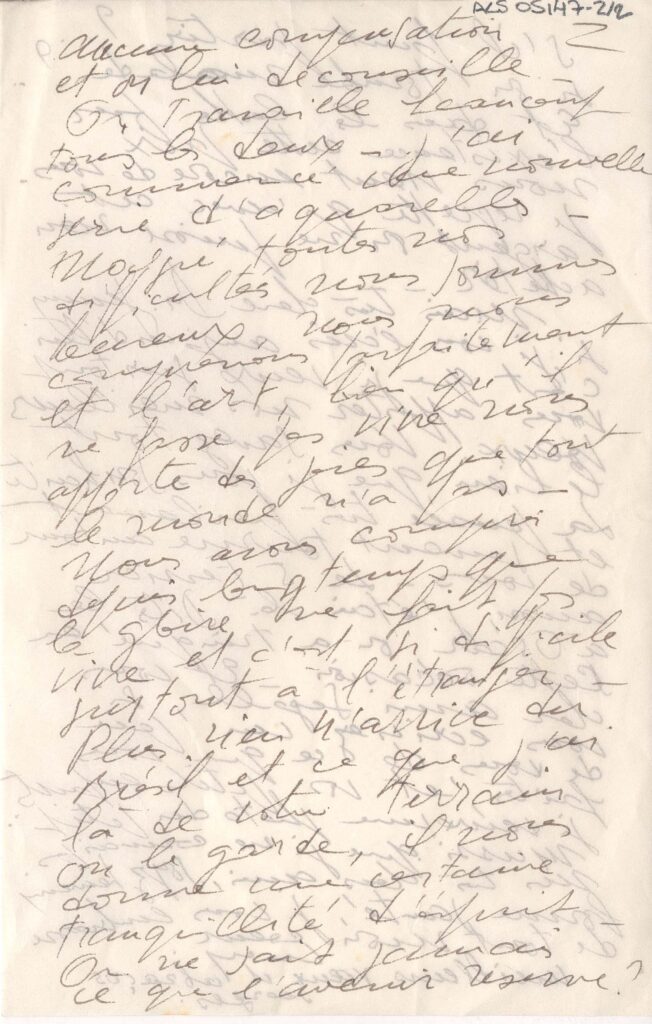 ALS 05/47-2/2
2
aucune compensation
et on lui déconseille
On Travaille beaucoup
tous les deux - j'ai
commencé une nouvelle
serie d'aquarelles -
Malgré toutes nos
difficultés nous sommes
heureux nous nous
comprenons parfaitement
et l'art, bien qu'il
ne fasse pas vivre nous
apporte des joies que tout
le monde n'a pas -
Nous avons compris
depuis longtemps que
la gloire ne fait pas
vivre et c'est si difficile
surtout à l'étranger -
Plus rien n'arrive du
Brésil et ce que j'ai
là de votre Terrain
on le garde, il nous
donne une certaine
tranquillité d'esprit -
On ne sait jamais
ce que l'avenir réserve?